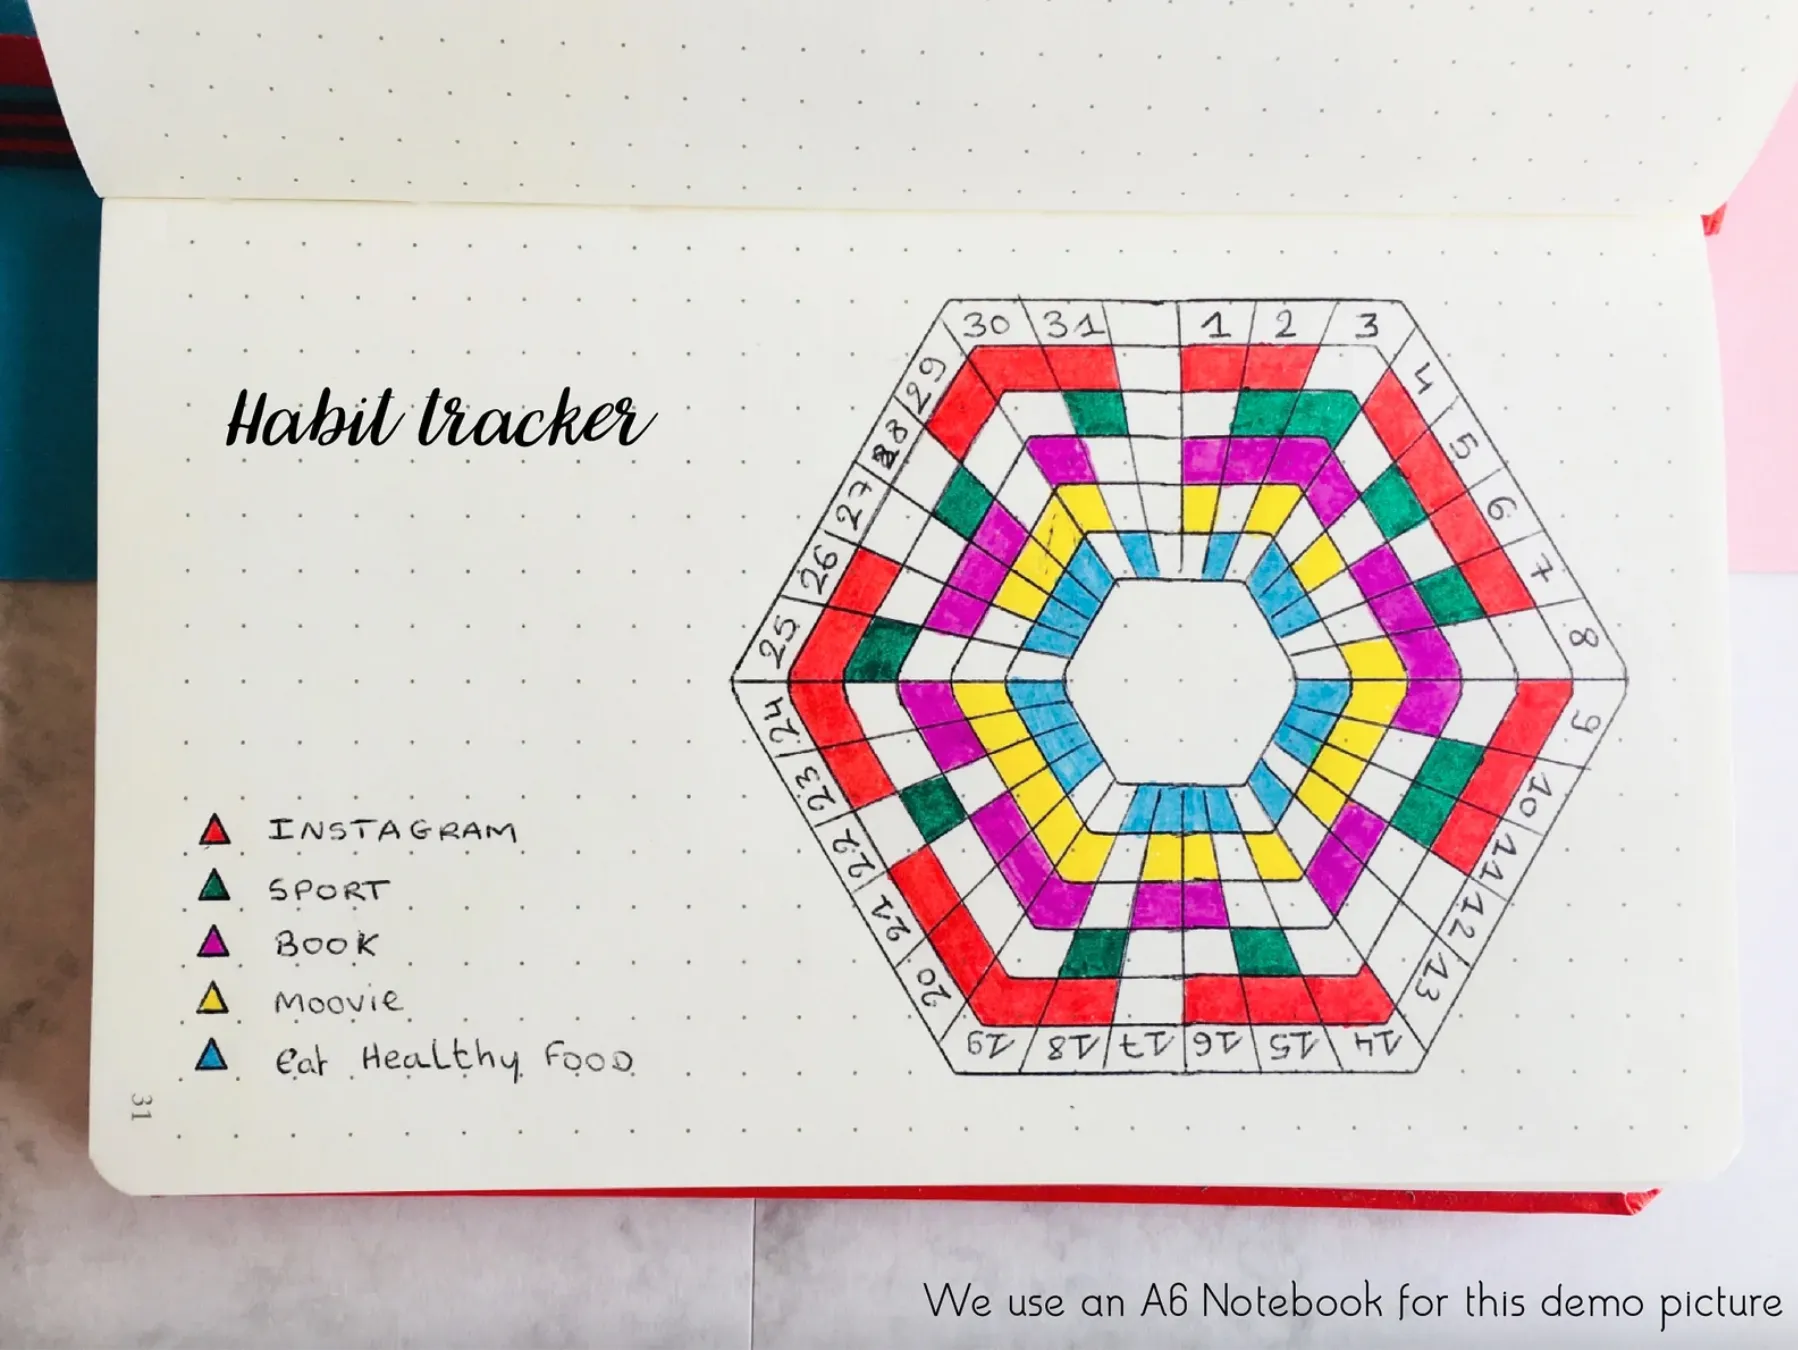 Habit tracker
INSTAGRAM
SPORT
BOOK
MOOVIE
Eat Healthy FOOD
31
1
2
3
4
5
6
7
8
9
10
11
12
13
14
15
16
17
18
19
20
21
22
23
24
25
26
27
28
29
30
31
We use an A6 Notebook for this demo picture